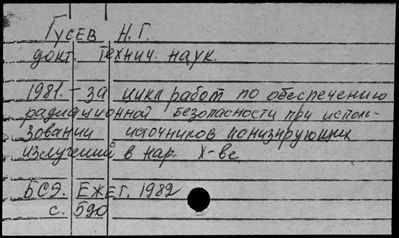 Гусев Н. Г.
докт. технич. наук.
1981.- за цикл работ по обеспечению
радиационной безопасности при исполь-
зовании источников ионизирующих
излучений в нар. х-ве
БСЭ. ЕЖЕГ. 1982
с. 590